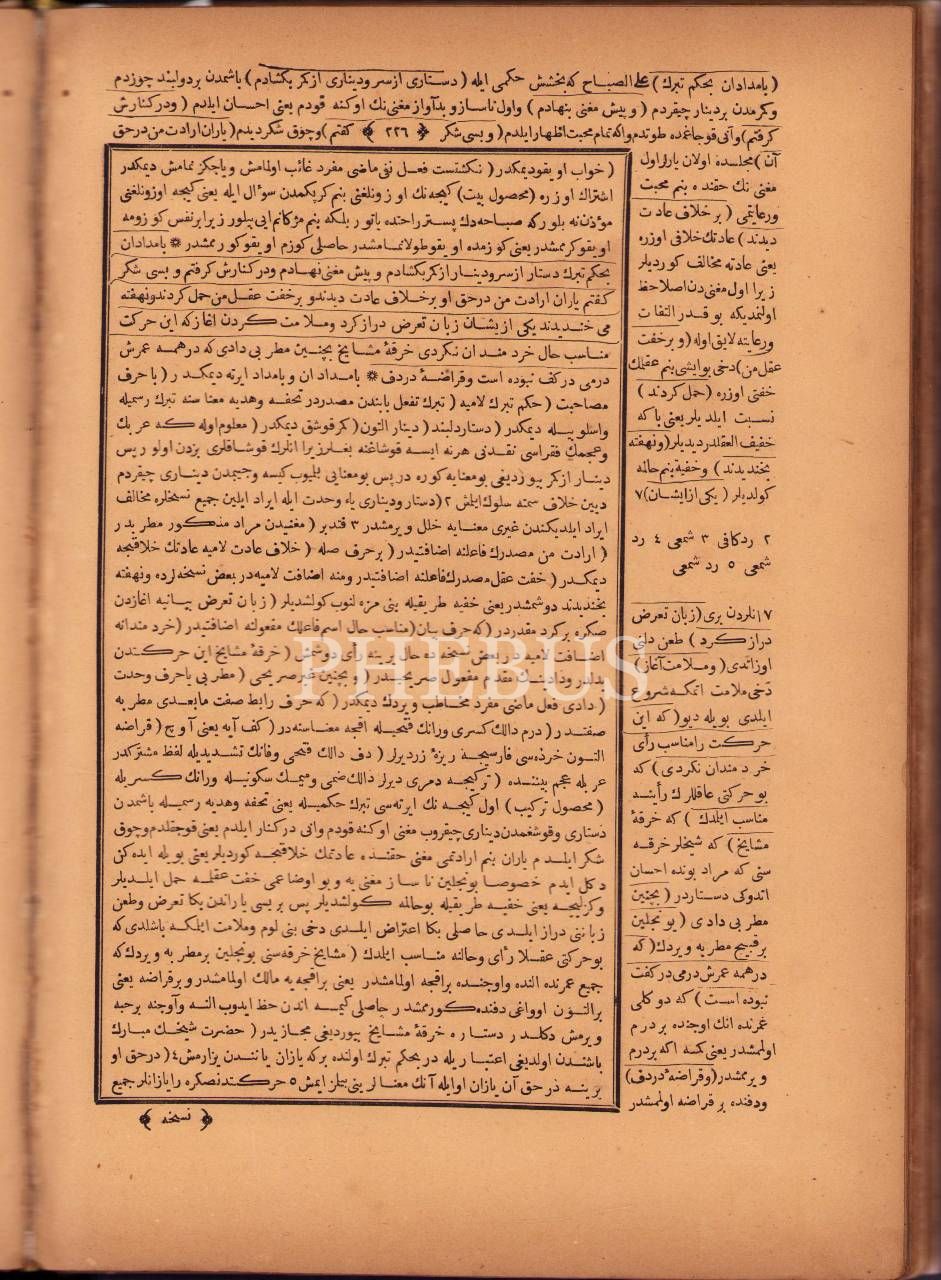 ( بامدادان بحكم تبرك ) على الصباح كه بخشش حكمى ايله ( دستارى از سر و دينارى از كمر بكشادم ) باشمدن بر دولبند چوزدم
وكمرمدن بر دينار چيقردم ( و پيش مغنى بنهادم ) واول ناساز و بدآواز مغنى نك اوكنه قودم يعنى احسان ايلدم ( ودر كنارش
كرفتم ) وآنى قوجاغمده طوتدم واكه تمام محبت اظهار ايلدم ( و بسى شكر ﴿ ٢٢٦ ﴾ كفتم ) وچوق شكر ديدم ( ياران ارادت من درحق
آن ) مجلسده اولان يارلر اول
مغنى نك حقنده بنم محبت
ورعايتمى ( بر خلاف عادت
ديدند ) عادتك خلافى اوزره
يعنى عادته مخالف كورديلر
زيرا اول مغنى دن اصلا حظ
اولنمديكه بو قدر التفات
ورعايته لايق اوله ( و بر خفت
عقل من ) دخى بوايشى بنم عقلمك
خفتى اوزره ( حمل كردند )
نسبت ايلديلر يعنى بكا كه
خفيف العقلدر ديديلر ( ونهفته
بخنديدند ) وخفيه بنم حالمه
كولديلر ( يكى از ايشان ) ٧
٢ رد كافى ٣ شمعى ٤ رد
شمعى ٥ رد شمعى
٧ انلردن برى ( زبان تعرض
دراز كرد ) طعن دلنى
اوزاتدى ( وملامت آغاز )
دخى ملامت اتمكه شروع
ايلدى بويله ديو ( كه اين
حركت را مناسب رأى
خردمندان نكردى ) كه
بو حركتى عاقللرك رأينه
مناسب ايلمدك ( كه خرقهٔ
مشايخ ) كه شيخلر خرقه
سنى كه مراد بونده احسان
اتدوكى دستاردر ( بچنين
مطربى دادى ) بونجلين
بر قبيح مطربه ويردك ( كه
در همه عمرش درمى در كفت
نبوده است ) كه دوكلى
عمرنده انك اوجنده بر درم
اولمامشدر يعنى كمسه اكه بر درم
ويرمامشدر ( وقراضهٔ در دف )
ودفنده بر قراضه اولمامشدر
( خواب او بقو ديمكدر ( ننكشتست فعل نفى ماضى مفرد غائب اولمامش و ياچكز نمامش ديمكدر
اشتراك اوزره ( محصول بيت ) كيجه نك اوزونلغنى بنم كربكمدن سؤال ايله يعنى كيجه اوزونلغنى
مؤذن نه بلور كه صباحه دك بستر راحتده ياتور بلكه بنم مژكانم ايى بيلور زيرا بر نفس كوزومه
او يقو كرمامشدر يعنى كوزمده او يقو طولانمامشدر حاصلى كوزم او يقو كورمامشدر * بامدادان
بحكم تبرك دستار از سر ودينار از كمر بكشادم و پيش مغنى نهادم ودر كنارش كرفتم و بسى شكر
كفتم ياران ارادت من در حق او بر خلاف عادت ديدند و بر خفت عقل من حمل كردند ونهفته
مى خنديدند يكى ازيشان زبان تعرض دراز كرد وملامت كردن آغاز كه اين حركت
مناسب حال خردمندان نكردى خرقهٔ مشايخ بچنين مطربى دادى كه در همه عمرش
درمى در كف نبوده است وقراضهٔ در دف * بامدادان و بامداد ايرته ديمكدر ( با حرف
مصاحبت ( حكم تبرك لاميه ( تبرك تفعل بابندن مصدردر تحفه وهديه معناسنه تبرك رسميله
واسلوبيله ديمكدر ( دستار دلبند ( دينار التون ( كمر قوشق ديمكدر ( معلوم اوله كه عربك
وعجمك فقراسى نقدنى هرنه ايسه قوشاغنه بغلرلر زيرا انلرك قوشاقلرى بزدن اولور پس
دينار از كمر بيوردغى بو معنايه كوره در پس بو معنايى بيلميوب كيسه وجيبمدن دينارى چيقردم
ديين خلاف سمته سلوك ايلمش ٢ ( دستار ودينارى ياء وحدت ايله ايراد ايلين جميع نسخلره مخالف
ايراد ايلديكندن غيرى معنايه خلل ويرمشدر ٣ قندبر ( مغنيدن مراد مذكور مطربدر
( ارادت من مصدرك فاعلنه اضافتيدر ( بر حرف صله ( خلاف عادت لاميه عادتك خلافنجه
ديمكدر ( خفت عقل مصدرك فاعلنه اضافتيدر ومنه اضافت لاميه در بعض نسخه لرده ونهفته
بخنديدند دوشمشدر يعنى خفيه طريقيله بنى مزه لنوب كولشديلر ( زبان تعرض بيانيه آغازدن
صكره بر كرد مقدردر ( كه حرف بيان ( مناسب حال اسم فاعلك مفعولنه اضافتيدر ( خردمندانه
اضافت لاميه در بعض نسخه ده حال يرينه رأى دوشمش ( خرقهٔ مشايخ اين حركتدن
بدلدر ودادينك مقدم مفعول صريحيدر ( و بچنين غير صريحى ( مطربى يا حرف وحدت
( دادى فعل ماضى مفرد مخاطب ويردك ديمكدر ( كه حرف رابط صفت مابعدى مطربه
صفتدر ( درم دالك كسرى ورانك فتحيله اقچه معناسنه در ( كف آيه يعنى آوچ ( قراضه
التون خرده سى فارسيجه ريزهٔ زر ديرلر ( دف دالك فتحى وفانك تشديديله لفظ مشتركدر
عربله عجم بيننده ( تركيجه دمرى ديرلر دالك ضمى وميمك سكونيله ورانك كسريله
( محصول تركيب ) اول كيجه نك ايرته سى تبرك حكميله يعنى تحفه وهديه رسميله باشمدن
دستارى وقوشغمدن دينارى چيقروب مغنى اوكنه قودم وانى در كنار ايلدم يعنى قوجقلدم وچوق
شكر ايلدم ياران بنم ارادتمى مغنى حقنده عادتمك خلافنجه كورديلر يعنى بويله ايده كن
دكل ايدم خصوصا بونجلين ناساز مغنى يه و بو اوضاعمى خفت عقلمه حمل ايلديلر
وكزليجه يعنى خفيه طريقيله بو حالمه كولشديلر پس بريسى ياراندن بكا تعرض وطعن
زباننى دراز ايلدى حاصلى بكا اعتراض ايلدى دخى بنى لوم وملامت ايلمكه باشلدى كه
بو حركتى عقلا رأى وحالنه مناسب ايلمدك ( مشايخ خرقه سنى بونجلين بر مطربه ويردك كه
جميع عمرنده النده واوجنده بر اقچه اولمامشدر يعنى بر اقچه يه مالك اولمامشدر و بر قراضه يعنى
بر التون اوواغى دفنده كورمامشدر حاصلى كيمسه اندن حظ ايدوب النه وآوجنه بر حبه
ويرمش دكلدر دستاره خرقهٔ مشايخ بيوردغى مجازيدر ( حضرت شيخك مبارك
باشندن اولديغى اعتباريله در بحكم تبرك اولنده بر كه يازان ياننده يزارمش ٤ ( در حق او
يرينه در حق آن يازان اوايله آنك معنالرينى بيلمز ايمش ٥ حركتدنصكره را يازانلر جميع
﴿ نسخه ﴾
PHEBUS